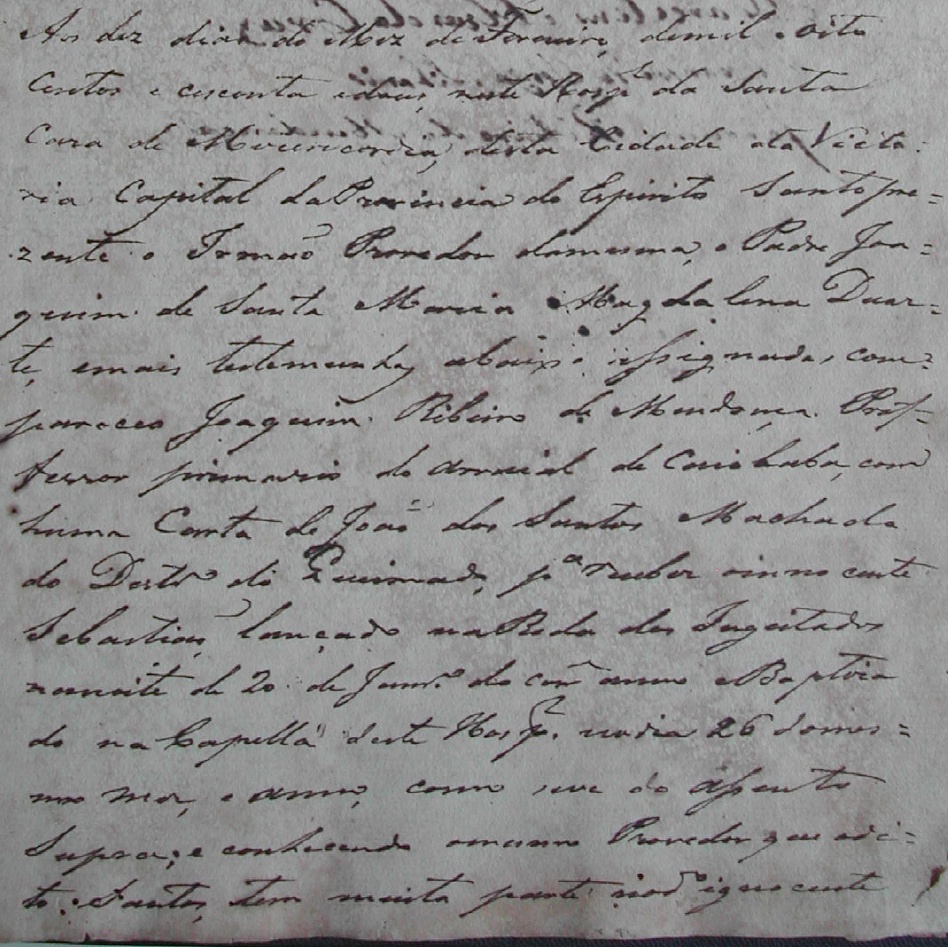 Aos dez dias do Mez de Fevereiro de mil e oito
Centos e cecenta e dous, neste Hosp.l da Santa
Caza de Mizericordia, desta Cidade da Victo=
ria Capital da Provincia do Espirito Santo pre=
zente o Irmaõ Provedor damesma, o Padre Joa=
quim de Santa Maria Magdalena Duar=
te, emais testemunhas abaixo assignadas, com=
pareceo Joaquim Ribeiro de Mendonça. Prof=
fessor primario do arraial de Cariahaba, com
huma Carta de Joaõ dos Santos Machado
do Destr.o do Queimado, p.a receber oinnocente
Sebastiaõ, lançado na Roda dos Ingeitados
nanoite de 20 de Janr.o do corr.e anno e Baptiza
do na Capella deste Hosp.l nodia 26 do mes=
mo mez, e anno, como seve do assento
Supra; e conhecendo omesmo Provedor que odi=
to Santos, tem muita parte no d.o ignocente